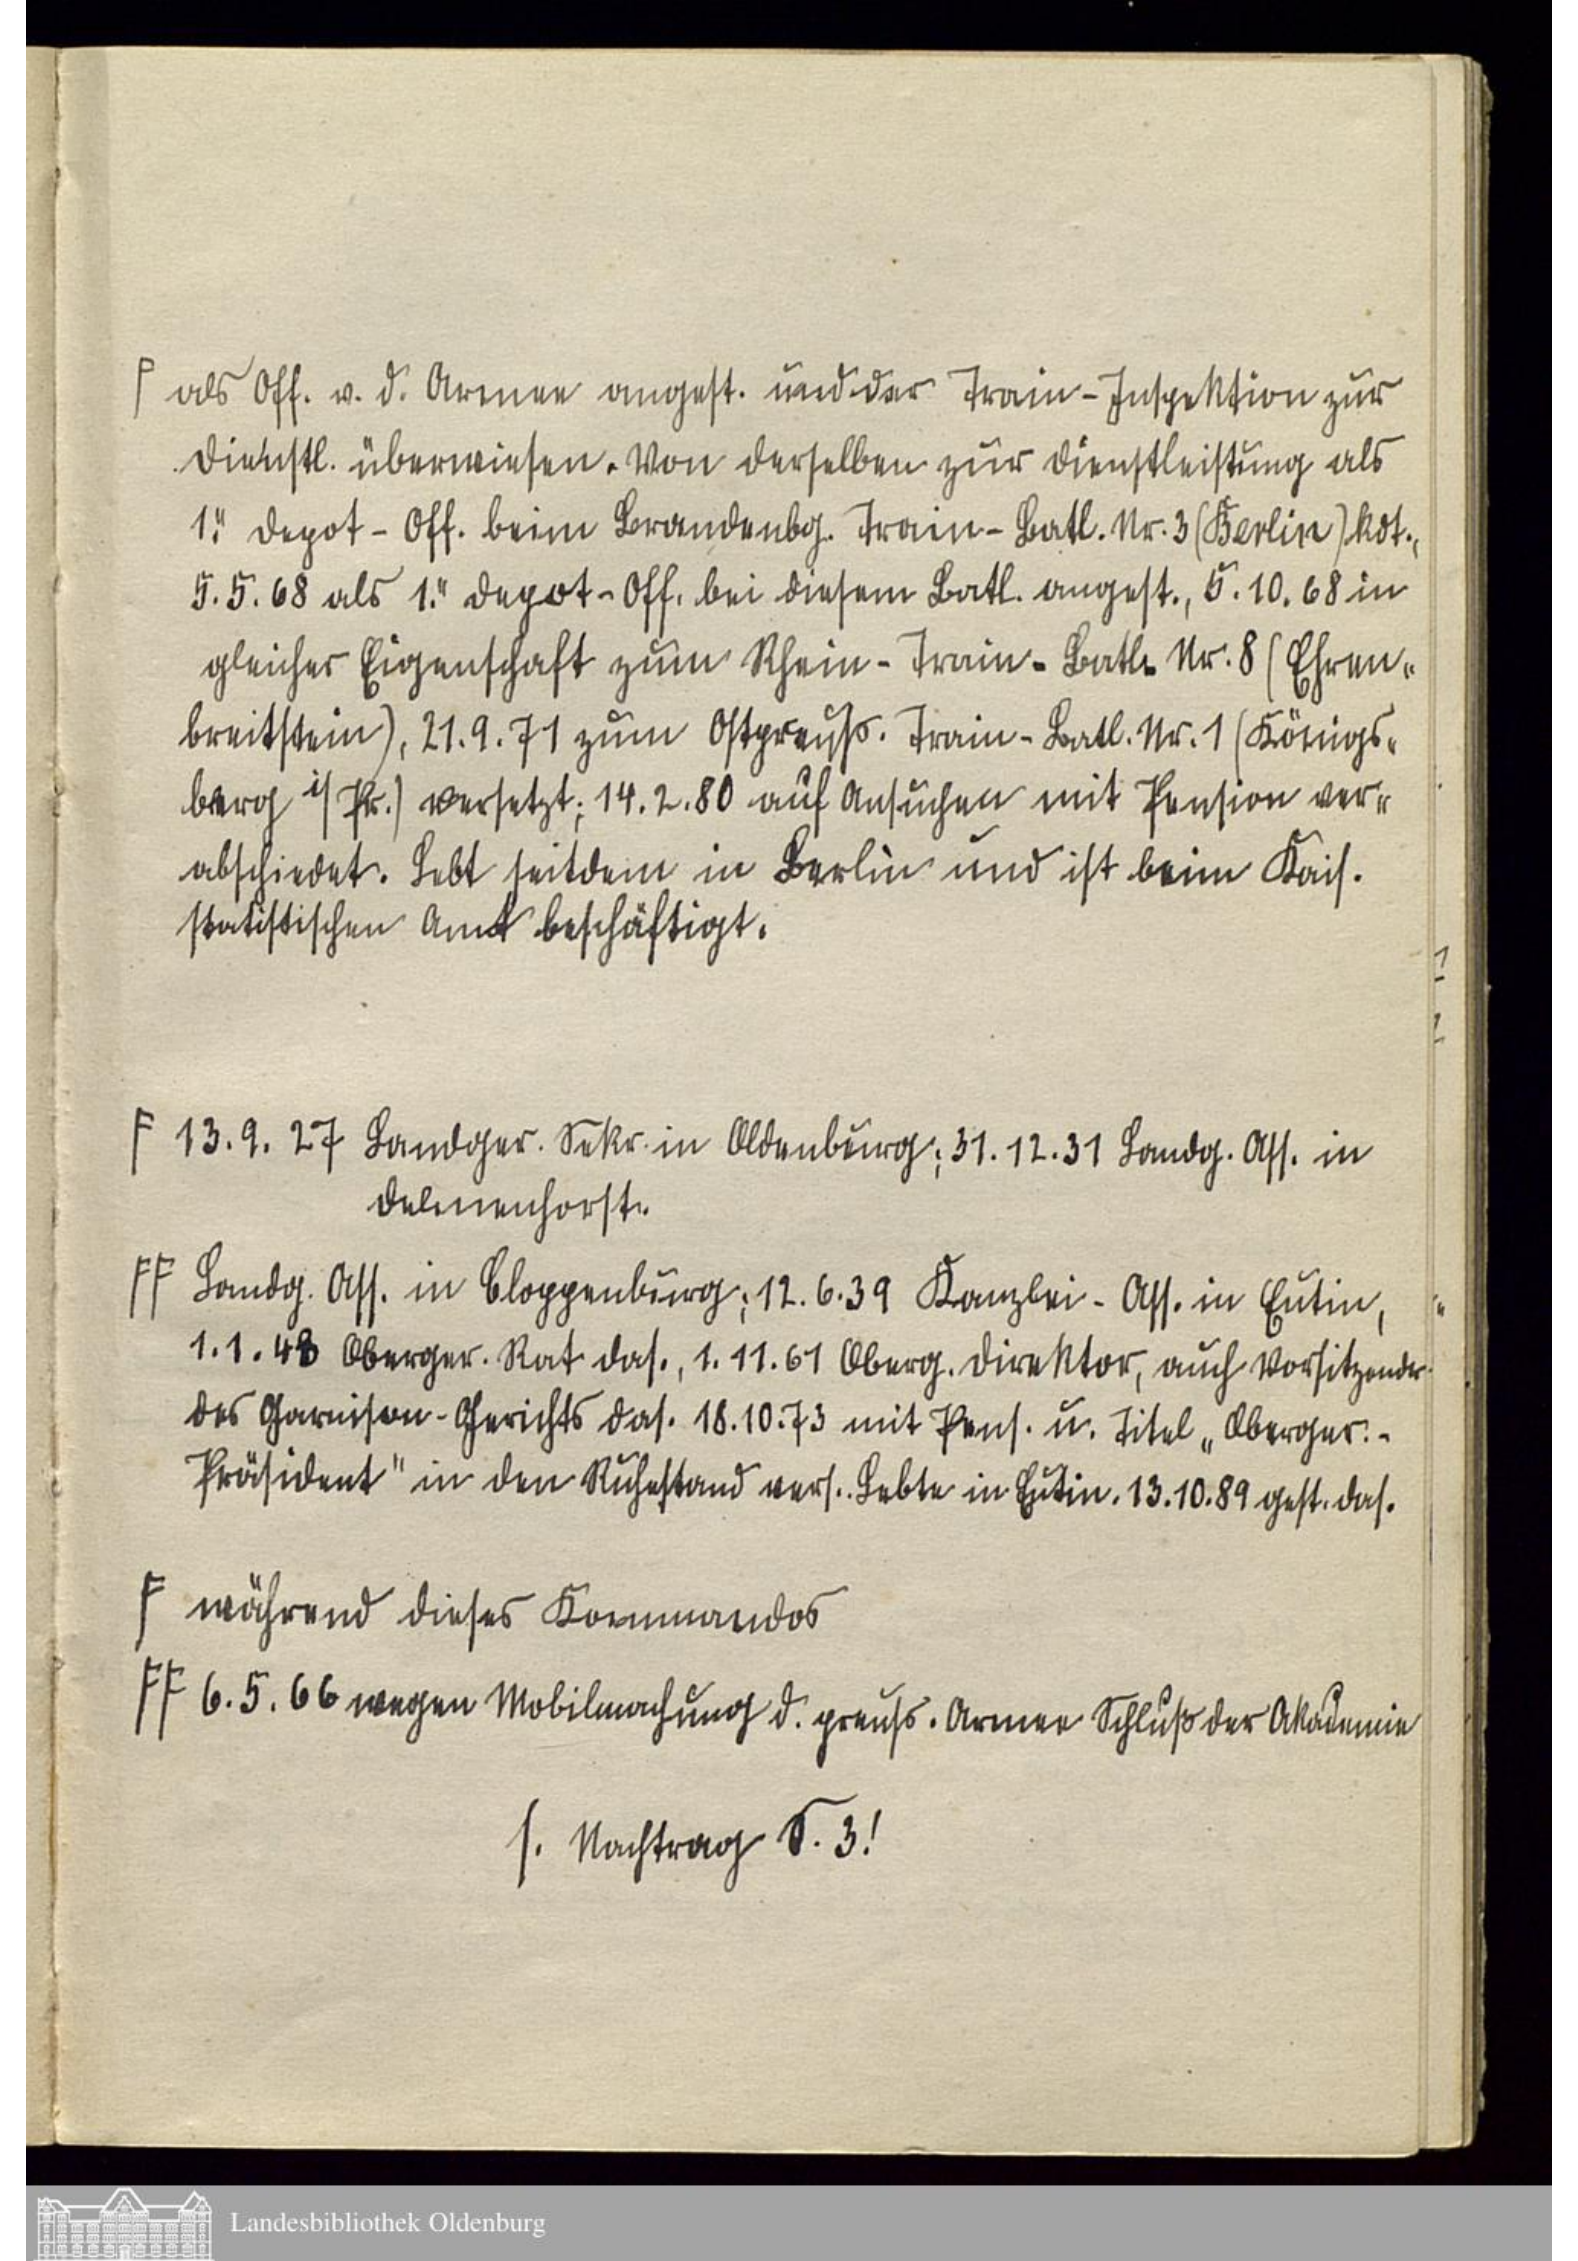 F als Off. v. d. Armee angest. und der Train-Inspektion zur
Dienstl. überwiesen. Von derselben zur Dienstleistung als
1." Depot-Off. beim Brandenbg. Train-Batl. Nr. 3 (Berlin) kdt.,
5.5.68 als 1." Depot-Off. bei diesem Batl. angest., 5.10.68 in
gleicher Eigenschaft zum Rhein-Train-Batl. Nr. 8 (Ehren-
breitstein), 21.9.71 zum Ostpreuß. Train-Batl. Nr. 1 (Königs-
berg i/Pr.) versetzt; 14.2.80 auf Ansuchen mit Pension ver-
abschiedet. Lebt seitdem in Berlin und ist beim Kais.
statistischen Amt beschäftigt.
F 13.9.27 Landger. Sekr. in Oldenburg; 31.12.31 Landg. Ass. in
Delmenhorst.
FF Landg. Ass. in Cloppenburg; 12.6.39 Kanzlei-Ass. in Eutin,
1.1.48 Oberger. Rat das., 1.11.61 Oberg. Direktor, auch Vorsitzender
des Garnison-Gerichts das. 18.10.73 mit Pens. u. Titel „Oberger.-
Präsident" in den Ruhestand vers. Lebte in Eutin. 13.10.89 gest. das.
F während dieses Kommandos
FF 6.5.66 wegen Mobilmachung d. preuß. Armee Schluß der Akademie
s. Nachtrag S. 3!
Landesbibliothek Oldenburg